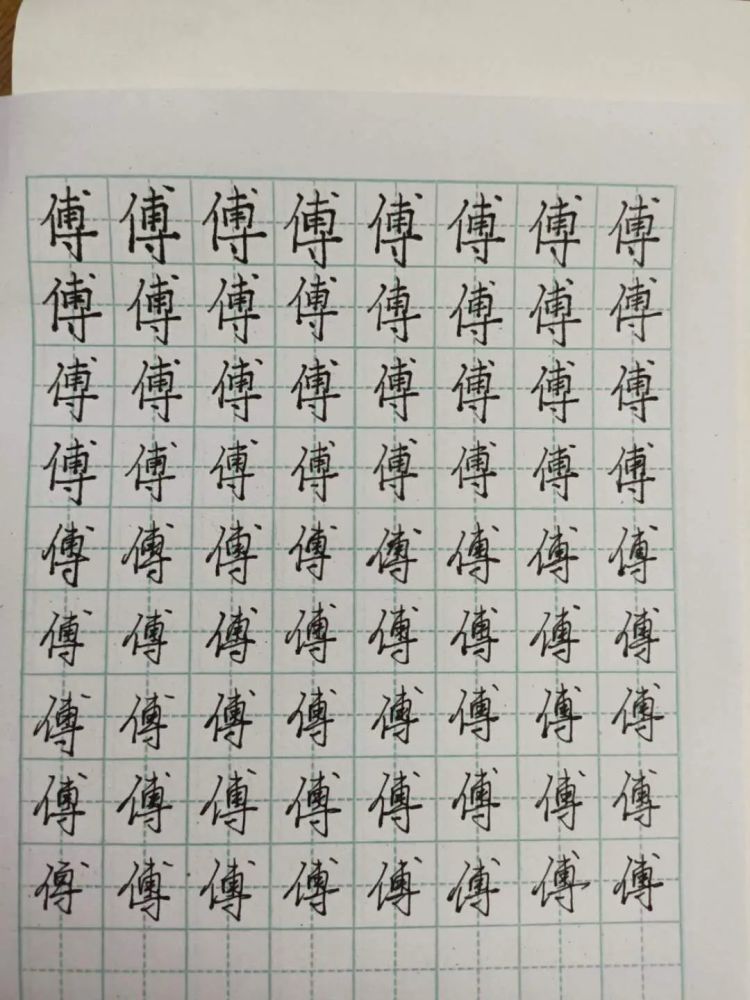 傅傅傅傅傅傅傅傅
傅傅傅傅傅傅傅傅
傅傅傅傅傅傅傅傅
傅傅傅傅傅傅傅傅
傅傅傅傅傅傅傅傅
傅傅傅傅傅傅傅傅
傅傅傅傅傅傅傅傅
傅傅傅傅傅傅傅傅
傅傅傅傅傅傅傅傅